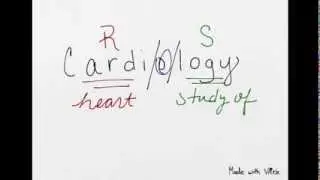 R S
Cardi/o/logy
heart study of
Made with VideoScribe